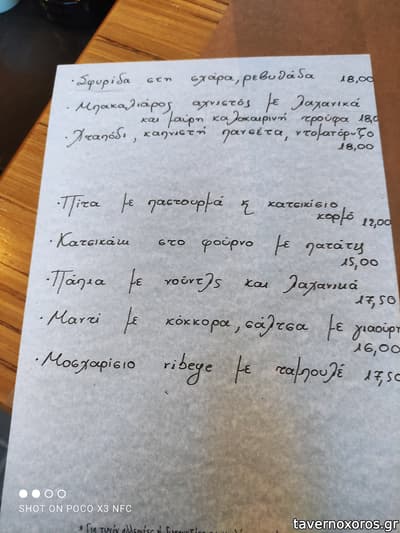 · Σφυρίδα στη σχάρα, ρεβυθάδα 18,00
· Μπακαλιάρος αχνιστός με λαχανικά
και μαύρη καλοκαιρινή τρούφα 18,0
· Χταπόδι, καπνιστή πανσέτα, ντοματόρυζο
18,00
· Πίτα με παστουρμά κ κατσικίσιο
κορμό 12,00
· Κατσικάκι στο φούρνο με πατάτες
15,00
· Πάπια με νούντλς και λαχανικά
17,50
· Μαντί με κόκκορα, σάλτσα με γιαούρτ
16,00
· Μοσχαρίσιο ribeye με ταμπουλέ 17,50
SHOT ON POCO X3 NFC
tavernoxoros.gr